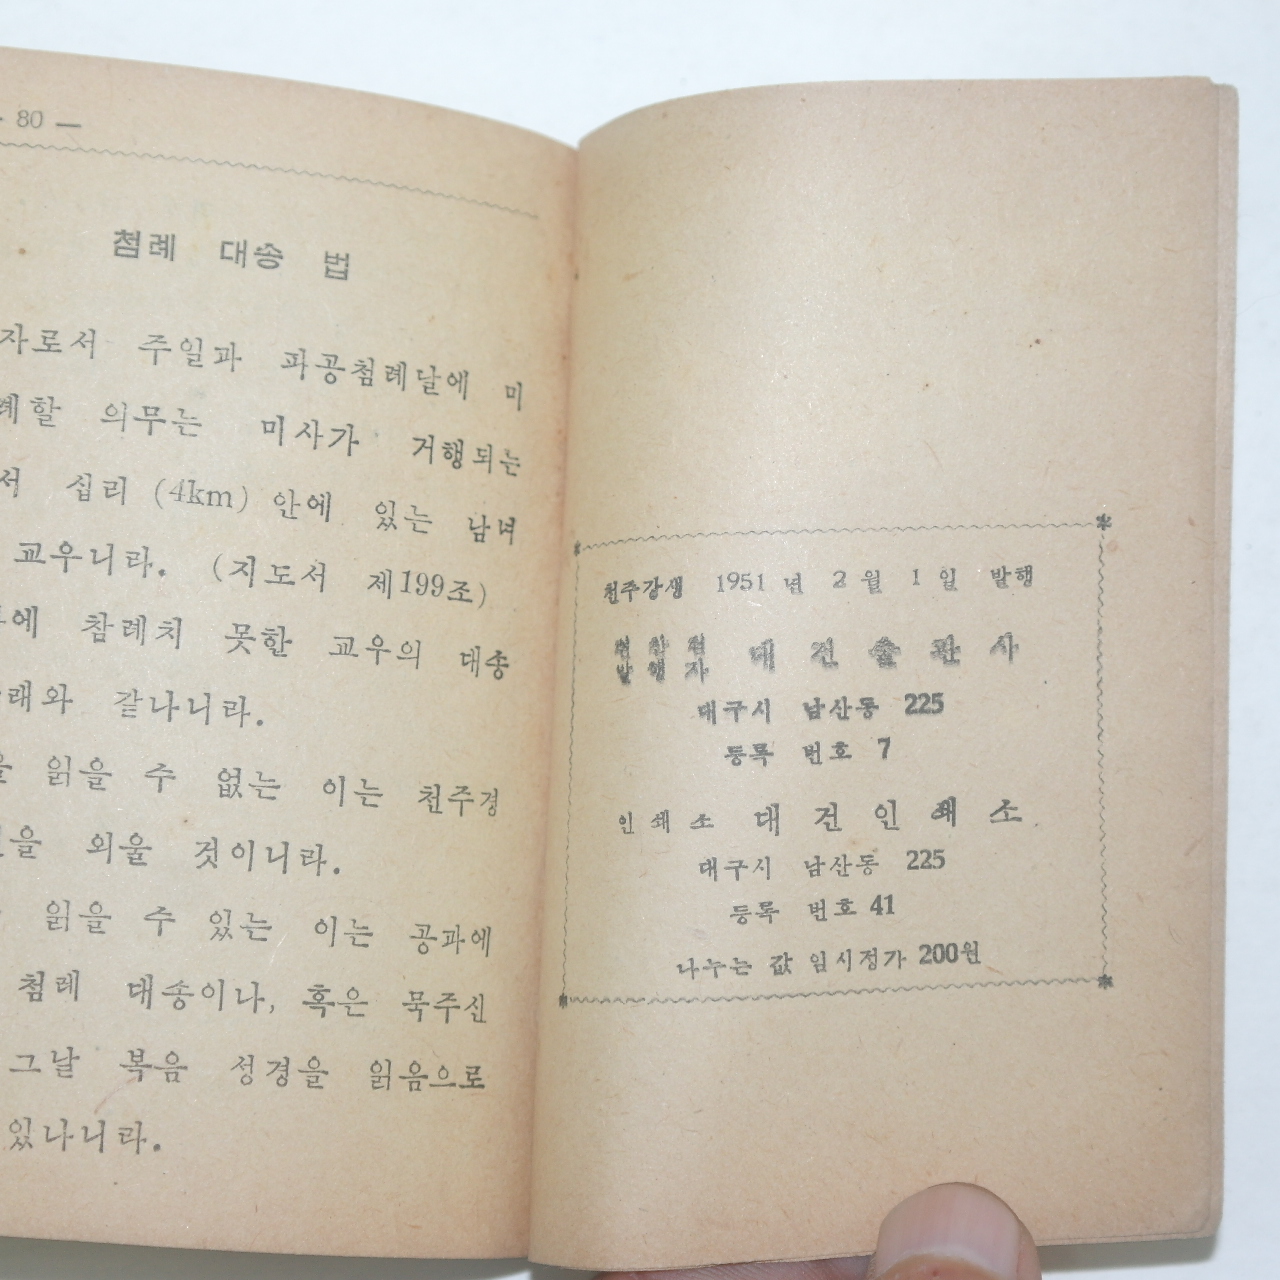 80 —
첨례 대송 법
자로서 주일과 파공첨례날에 미
례할 의무는 미사가 거행되는
서 십리 (4km) 안에 있는 남녀
교우니라. (지도서 제199조)
에 참례치 못한 교우의 대송
래와 같나니라.
을 읽을 수 없는 이는 천주경
을 외울 것이니라.
읽을 수 있는 이는 공과에
첨례 대송이나, 혹은 묵주신
그날 복음 성경을 읽음으로
있나니라.
천주강생 1951 년 2 월 1 일 발행
발행자 대건출판사
대구시 남산동 225
등록 번호 7
인쇄소 대건인쇄소
대구시 남산동 225
등록 번호 41
나누는 값 임시정가 200원